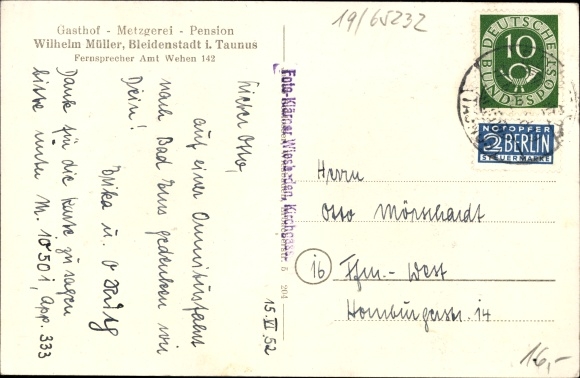 Gasthof - Metzgerei - Pension
Wilhelm Müller, Bleidenstadt i. Taunus
Fernsprecher Amt Wehen 142
19/65232
15. VI. 52
Lieber Otto,
auf einer Omnibusfahrt
nach Bad Ems gedenken wir
Dein!
Erika u.
Danke für die Karte zu sagen
bitte unter M. 10501, App. 333
Foto-Klärner, Wiesbaden, Kirchgasse
204
DEUTSCHE
BUNDESPOST
10
NOTOPFER
2 BERLIN
STEUERMARKE
Herrn
Otto Mörschardt
16 Ffm.-West
Homburgerstr. 14
16,-